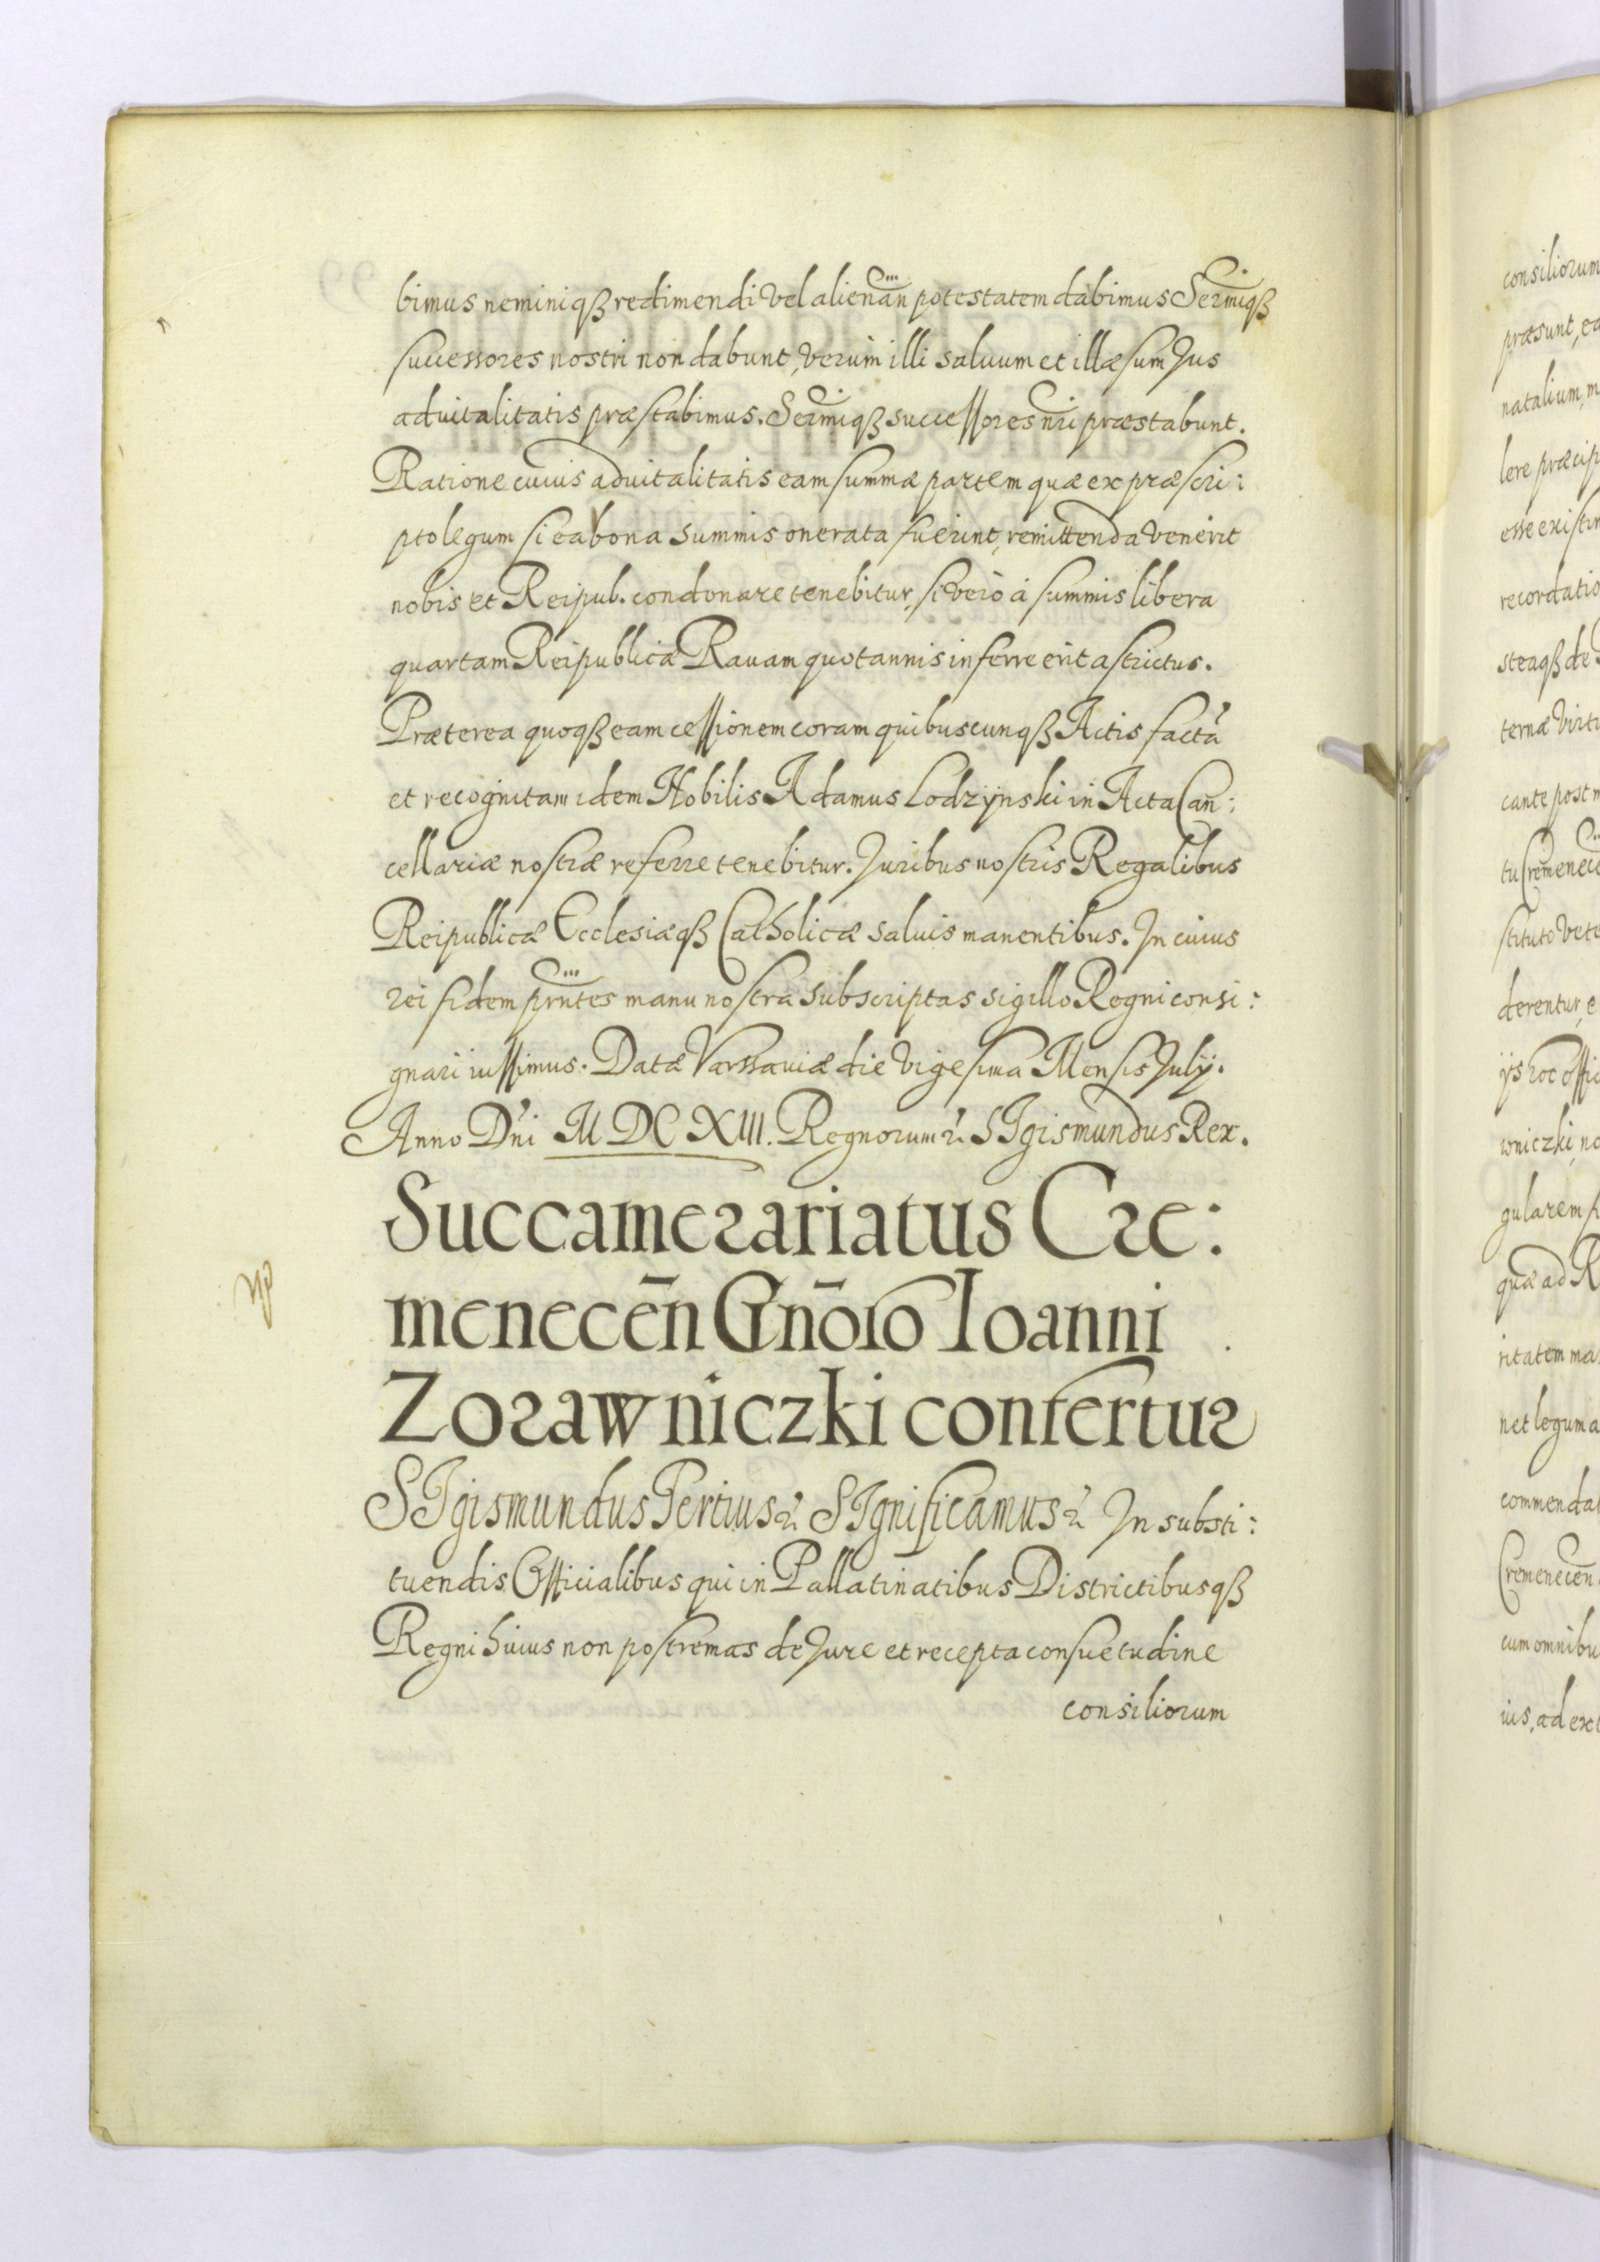 bimus neminiqꝫ redimendi vel alienan̄ potestatem dabimus Sermiqꝫ
successores nostri non dabunt, verùm illi saluum et illæsum Jus
aduitalitatis præstabimus. Sermiqꝫ successores nri præstabunt.
Ratione cuius aduitalitatis eam summæ partem quæ ex præscri:
pto legum si ea bona summis onerata fuerint, remittenda venerit
nobis et Reipub. condonare tenebitur, si verò à summis libera
quartam Reipublicæ Rauam quotannis inferre erit astrictus.
Præterea quoqꝫ eam cessionem coram quibuscunqꝫ Actis factā
et recognitam idem Nobilis Adamus Lodzÿnski in Acta Can:
cellariæ nostræ referre tenebitur. Juribus nostris Regalibus
Reipublicæ Ecclesiæqꝫ Catholicæ saluis manentibus. In cuius
rei fidem prntes manu nostra subscriptas sigillo Regni consi:
gnari iussimus. Datæ Varssauiæ die vigesima Mensis Julÿ.
Anno Dni M DC XIII. Regnorum ꝛ. SIgismundus Rex.
Succamerariatus Cre:
menecen̄ Gnōro Ioanni
Zorawniczki confertur
SIgismundus Tertius ꝛ. SIgnificamus ꝛ. In substi:
tuendis Officialibus qui in Pallatinatibus Districtibusqꝫ
Regni huius non postremas de Jure et recepta consuetudine
consiliorum
consiliorum
præsunt, ea
natalium, m
lere præcip
esse existim
recordatio
steaqꝫ de
ternæ virtu
cante post m
tu Cremenece
stituto vete
derentur, e
ijs hoc offic
wniczki, no
gularem fi
quæ ad R
ritatem ma
net legum a
commendat
Cremenecen̄
cum omnibu
ius, ad ext